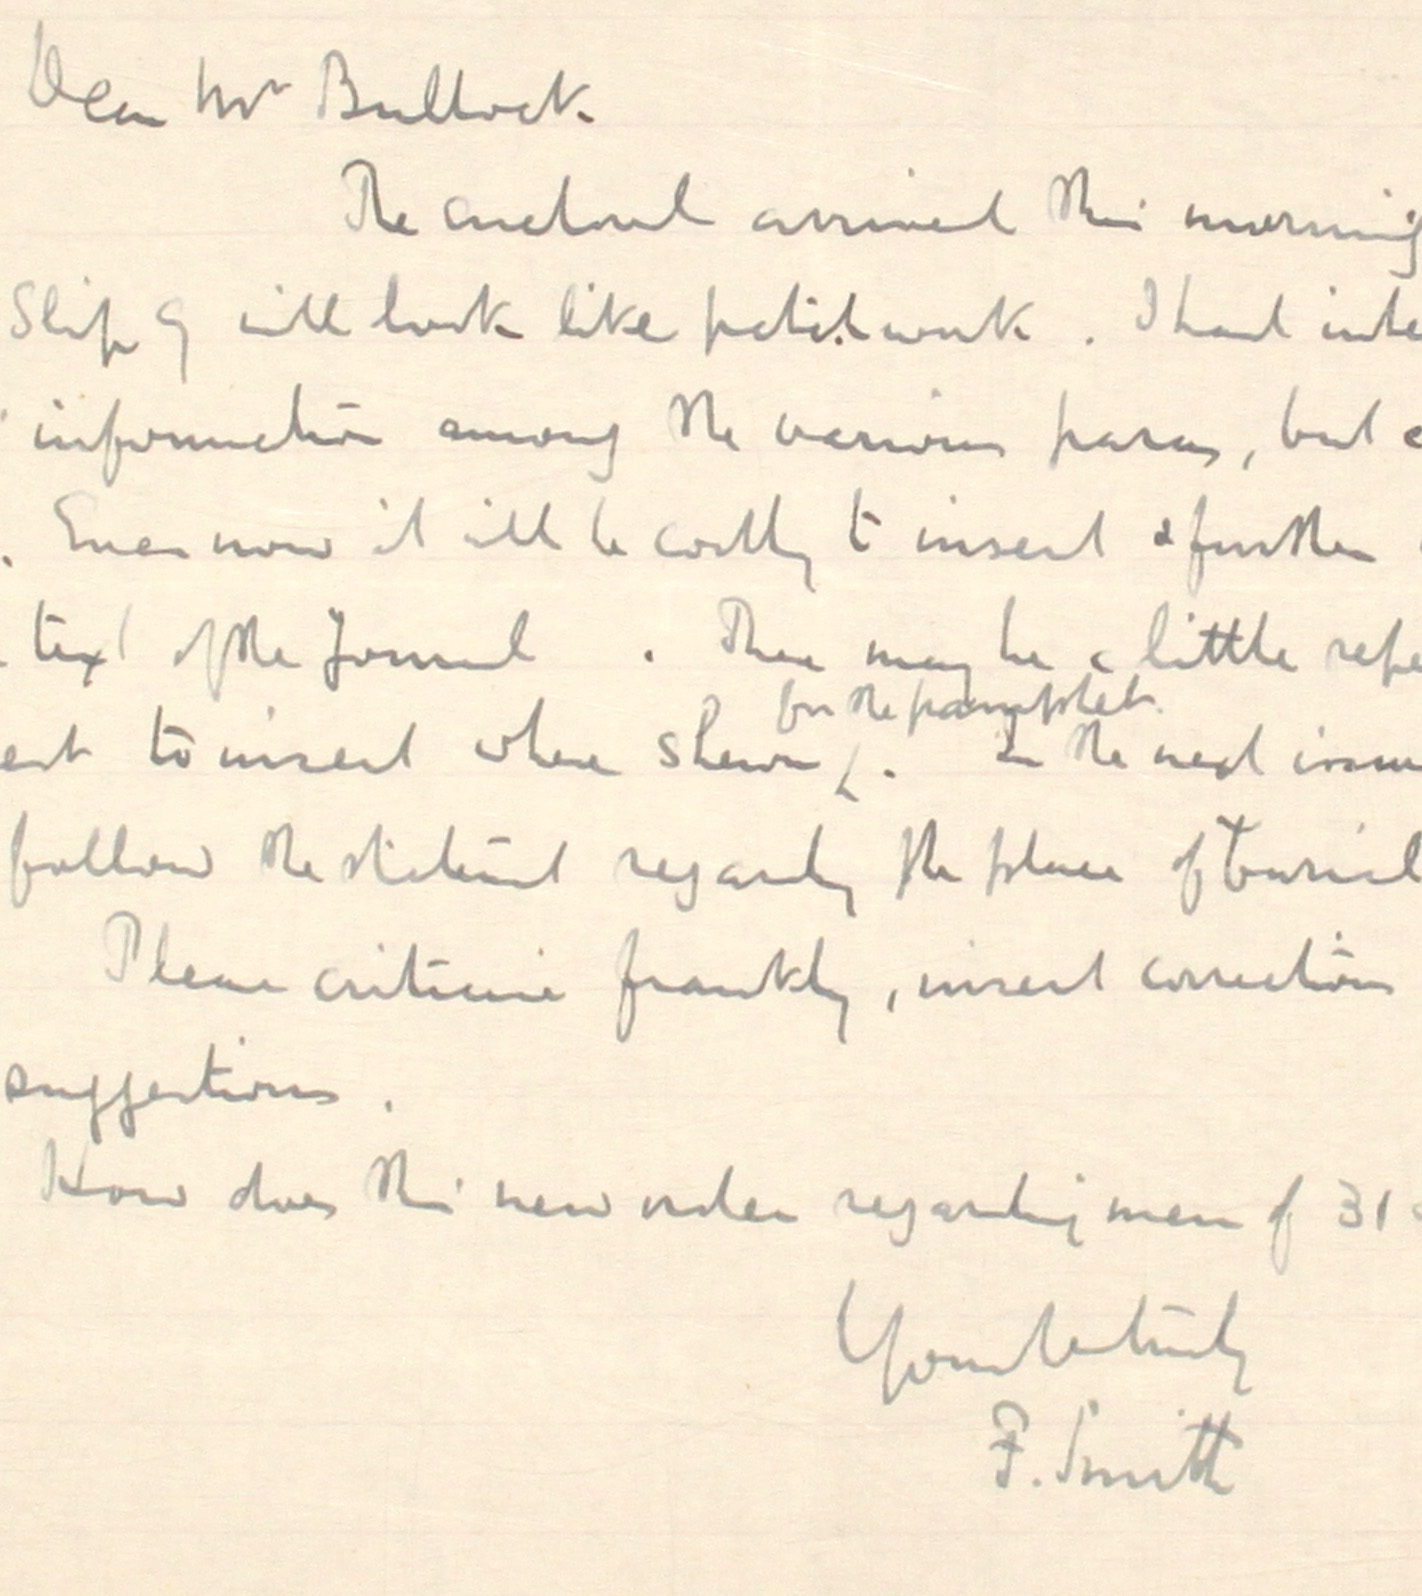 Dear Mr Bullock.
The enclosed arrived this morning
Slip 9 will look like patchwork. I had inte
information among the various paras, but
. Even now it will be costly to insert & further
text of the Journal. There may be a little repe
for the pamphlet.
ent to insert where shewn. In the next issu
follow the statement regarding the place of burial
Please criticise frankly, insert corrections
suggestions.
How does this new order regarding men of 31
Yours truly
F. Smith